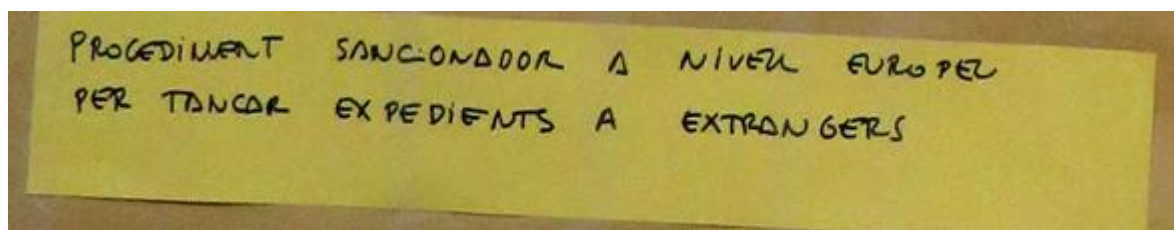 PROCEDIMENT SANCIONADOR A NIVELL EUROPEU
PER TANCAR EXPEDIENTS A EXTRANGERS